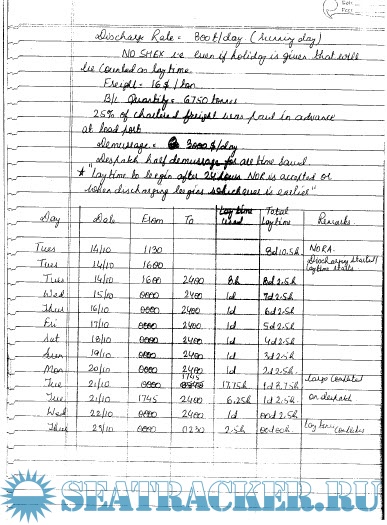 Discharge Rate = 800t/day (running day)
NO SHEX i.e even if holiday is given that will
be counted on laytime.
Freight - 16$/ton
B/L Quantity = 6750 tonnes
25% of chartered freight was paid in advance
at load port
Demurrage = 3000$/day
Despatch half demurrage for all time saved.
* "Laytime to begin after 24 hours NOR is accepted or
when discharging begins whichever is earlier"
Day Date From To Laytime used Total laytime Remarks
Tues 14/10 1130 8d 10.5h NORA.
Tues 14/10 1600 Discharging started/ laytime starts
Tues 14/10 1600 2400 8h 8d 2.5h
Wed 15/10 0000 2400 1d 7d 2.5h
Thus 16/10 0000 2400 1d 6d 2.5h
Fri 17/10 0000 2400 1d 5d 2.5h
Sat 18/10 0000 2400 1d 4d 2.5h
Sun 19/10 0000 2400 1d 3d 2.5h
Mon 20/10 0000 2400 1d 2d 2.5h
Tue 21/10 0000 1745 17.75h 1d 8.75h
Tue 21/10 1745 2400 6.25h 1d 2.5h on despatch
Wed 22/10 0000 2400 1d 00d 2.5h
Thus 23/10 0000 0230 2.5h 00d 00h laytime completes
SEATRACKER.RU